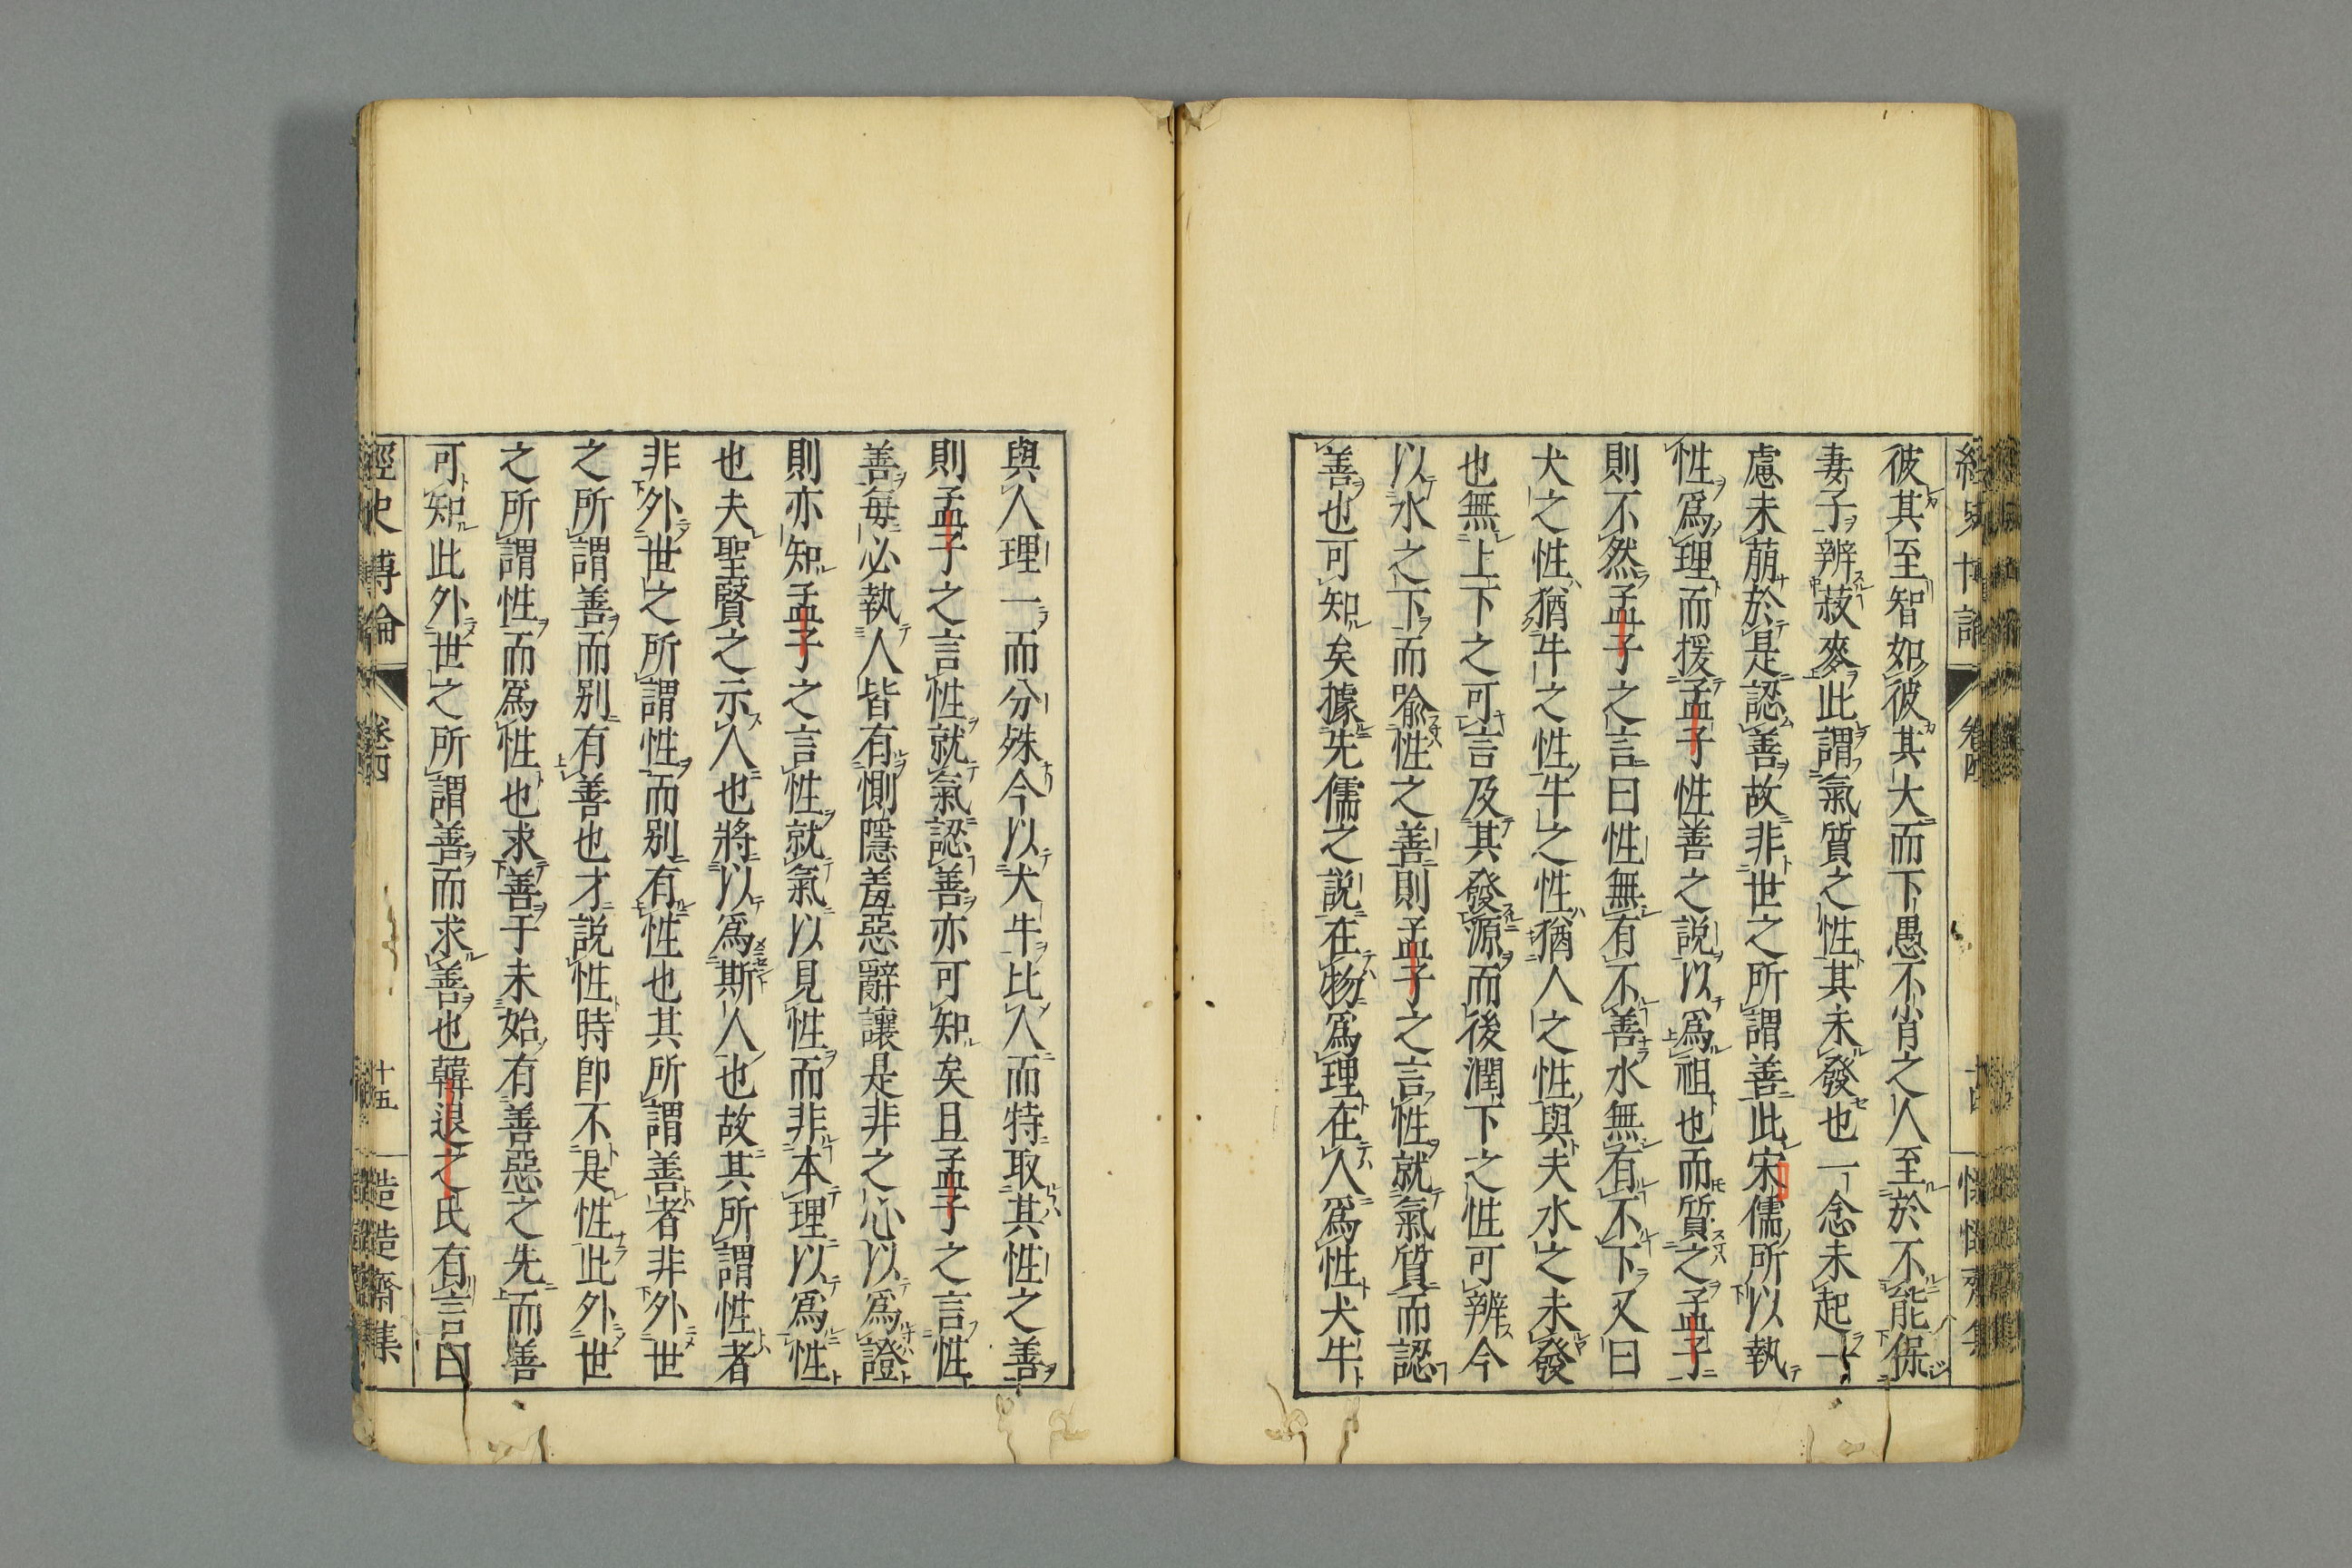 彼其至智如彼其大而下愚不肖之人至於不能保
妻子辨菽麥此謂氣質之性其未發也一念未起一
慮未萠於是認善故非世之所謂善此宋儒所以執
性爲理而援孟子性善之說以爲祖也而質之孟子
則不然孟子之言曰性無有不善水無有不下又曰
犬之性猶牛之性牛之性猶人之性與夫水之未發
也無上下之可言及其發源而後潤下之性可辨今
以水之下而喩性之善則孟子之言性就氣質而認
善也可知矣據先儒之說在物爲理在人爲性犬牛
與人理一而分殊今以犬牛比人而特取其性之善
則孟子之言性就氣認善亦可知矣且孟子之言性
善每必執人皆有惻隱羞惡辭讓是非之心以爲證
則亦知孟子之言性就氣以見性而非本理以爲性
也夫聖賢之示人也將以爲斯人也故其所謂性者
非外世之所謂性而别有性也其所謂善者非外世
之所謂善而别有善也才說性時卽不是性此外世
之所謂性而爲性也求善于未始有善惡之先而善
可知此外世之所謂善而求善也韓退之氏有言曰
經史博論
卷四
十五